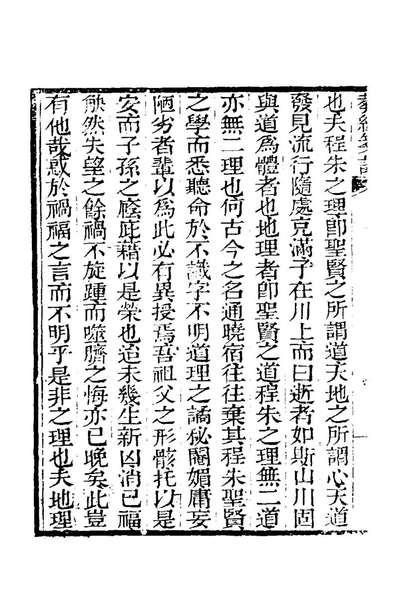 也夫程朱之理卽聖賢之所謂道天地之所謂心天道
發見流行隨處充滿子在川上而曰逝者如斯山川固
與道爲體者也地理者卽聖賢之道程朱之理無二道
亦無二理也何古今之名通曉宿往往棄其程朱聖賢
之學而悉聽命於不識字不明道理之譎秘闒媚庸妄
陋劣者輩以爲此必有異授焉吾祖父之形骸托以是
安而子孫之廕庇藉以是榮也迨未幾生新凶消已福
觖然失望之餘禍不旋踵而噬臍之悔亦已晚矣此豈
有他哉惑於禍福之言而不明乎是非之理也夫地理